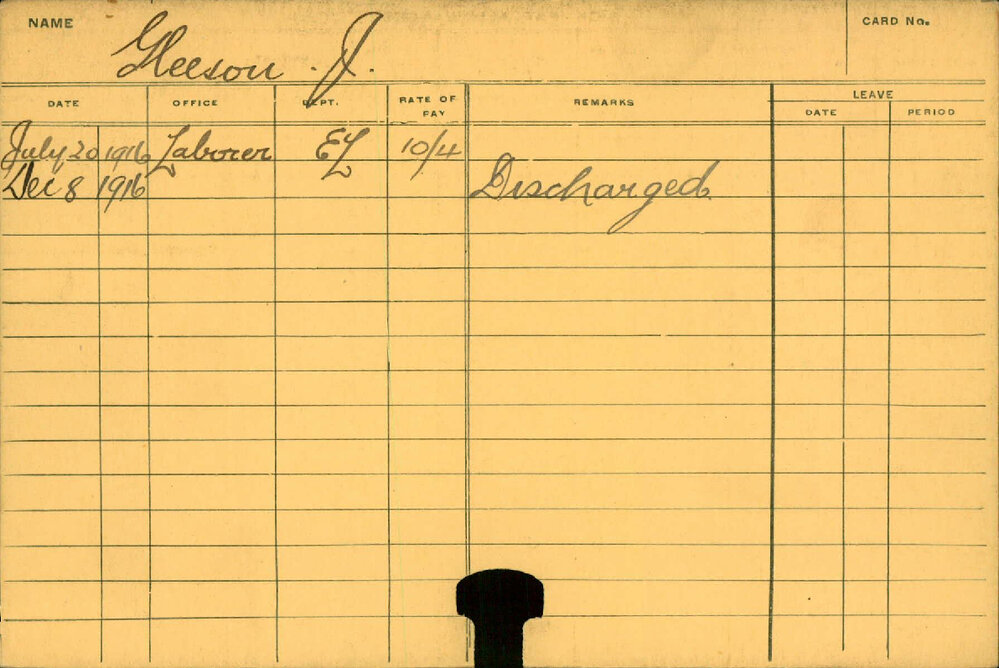 NAME Gleeson . J. CARD No.
DATE OFFICE DEPT. RATE OF PAY REMARKS LEAVE
DATE PERIOD
July 20 1916 Laborer EL 10/4
Dec 8 1916 Discharged